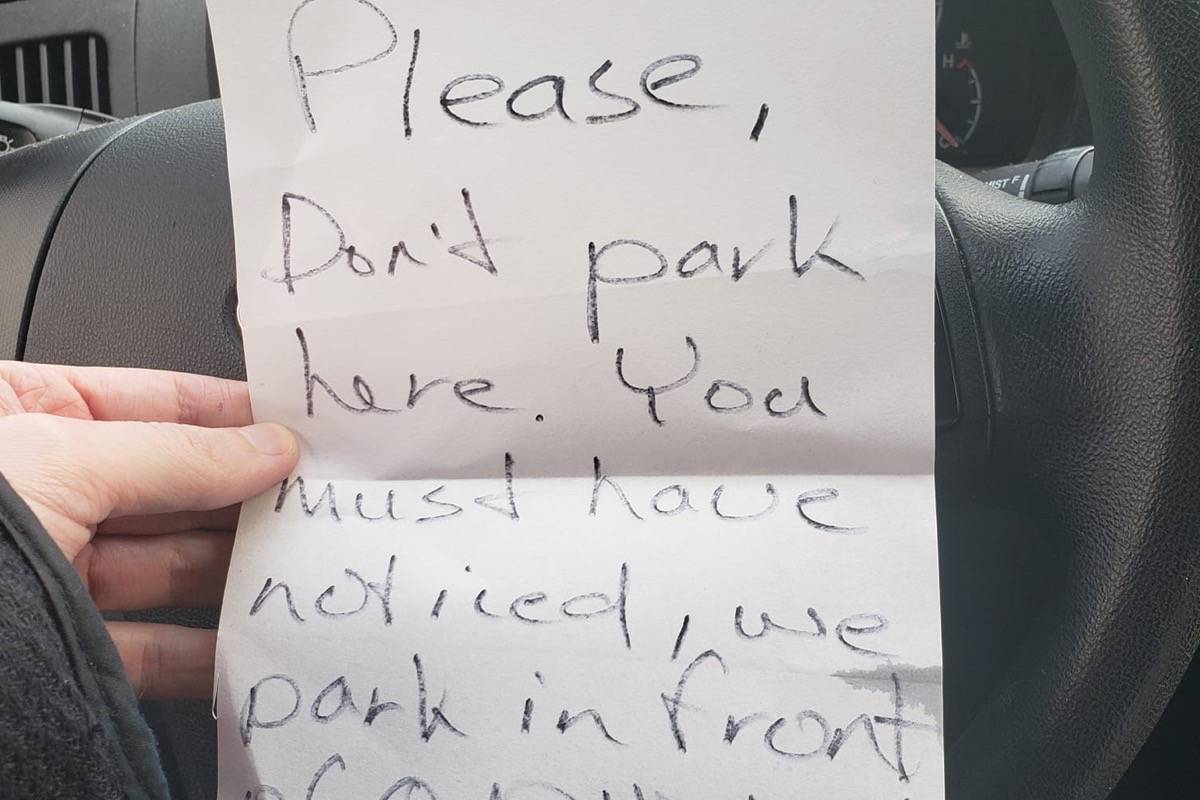 Please,
Don't park
here. You
must have
noticed, we
park in front
H
MIST F